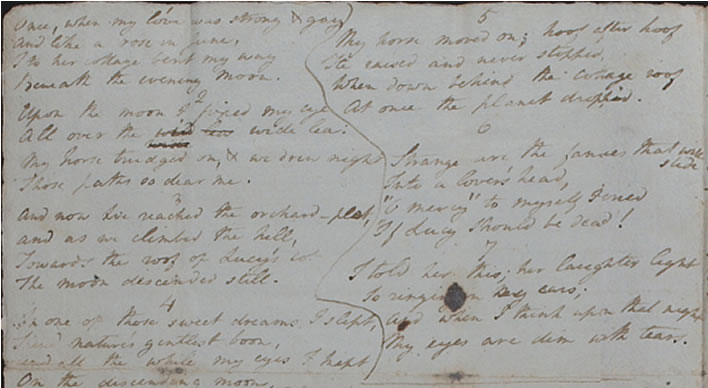 Once, when my love was strong & gay,
And like a rose in June,
I to her cottage bent my way
Beneath the evening Moon.
2
Upon the moon I fixed my eye
All over the wide lea:
My horse trudged on, & we drew nigh
Those paths so dear to me.
3
And now I've reached the orchard-plot,
And as we climbed the hill,
Towards the roof of Lucy's cot
The moon descended still.
4
In one of those sweet dreams I slept,
Kind nature's gentlest boon,
And all the while my eyes I kept
On the descending moon.
5
My horse moved on; hoof after hoof
He raised and never stopped,
When down behind the cottage roof
At once the planet dropp'd.
6
Strange are the fancies that will
slide
Into a lover's head,
"O mercy" to myself I cried
"If Lucy should be dead"!
7
I told her this; her laughter light
Is ringing in my ears;
And when I think upon that night
My eyes are dim with tears.